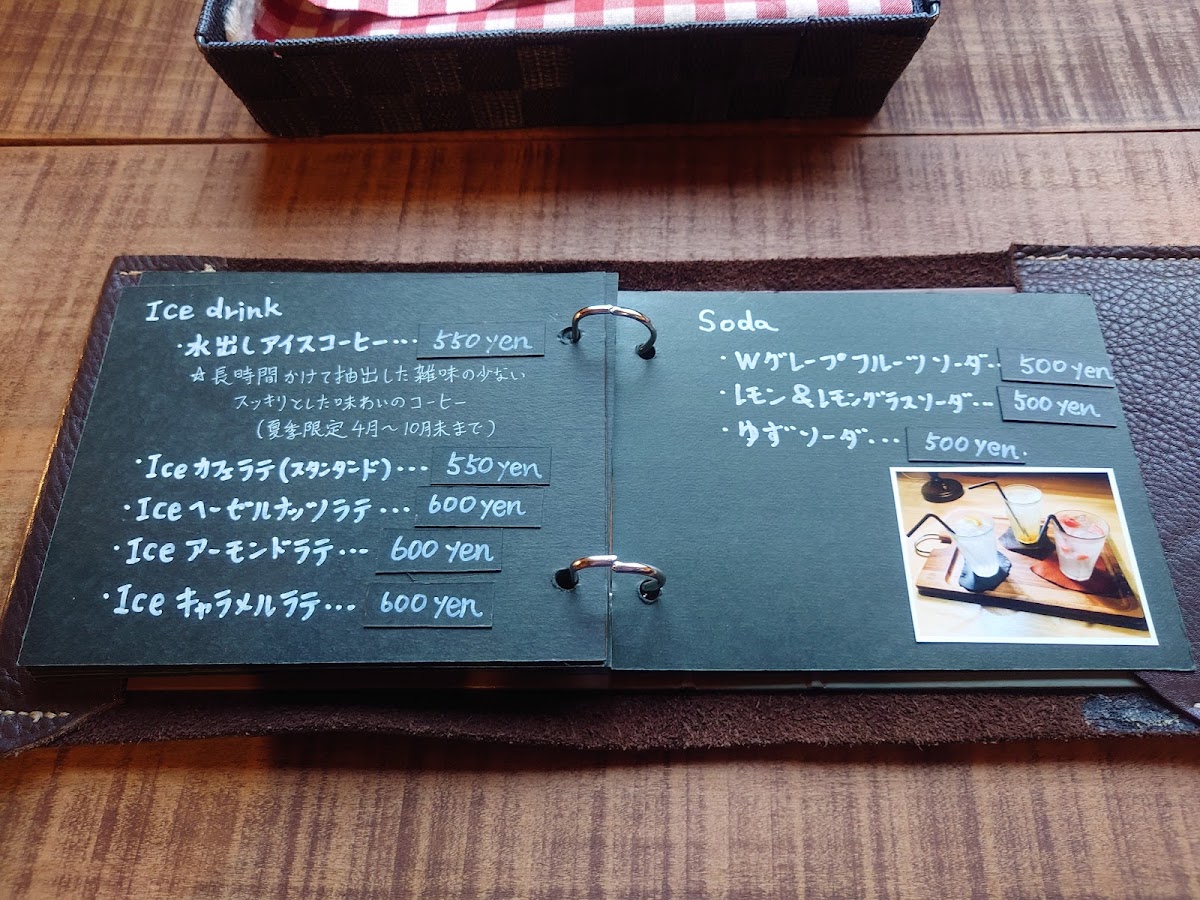 Ice drink
・水出しアイスコーヒー… 550 yen
☆長時間かけて抽出した雑味の少ない
スッキリとした味わいのコーヒー
(夏季限定 4月〜10月末まで)
・Ice カフェラテ(スタンダード)… 550 yen
・Ice ヘーゼルナッツラテ… 600 yen
・Ice アーモンドラテ… 600 yen
・Ice キャラメルラテ… 600 yen
Soda
・Wグレープフルーツソーダ… 500 yen
・レモン&レモングラスソーダ… 500 yen
・ゆずソーダ… 500 yen.